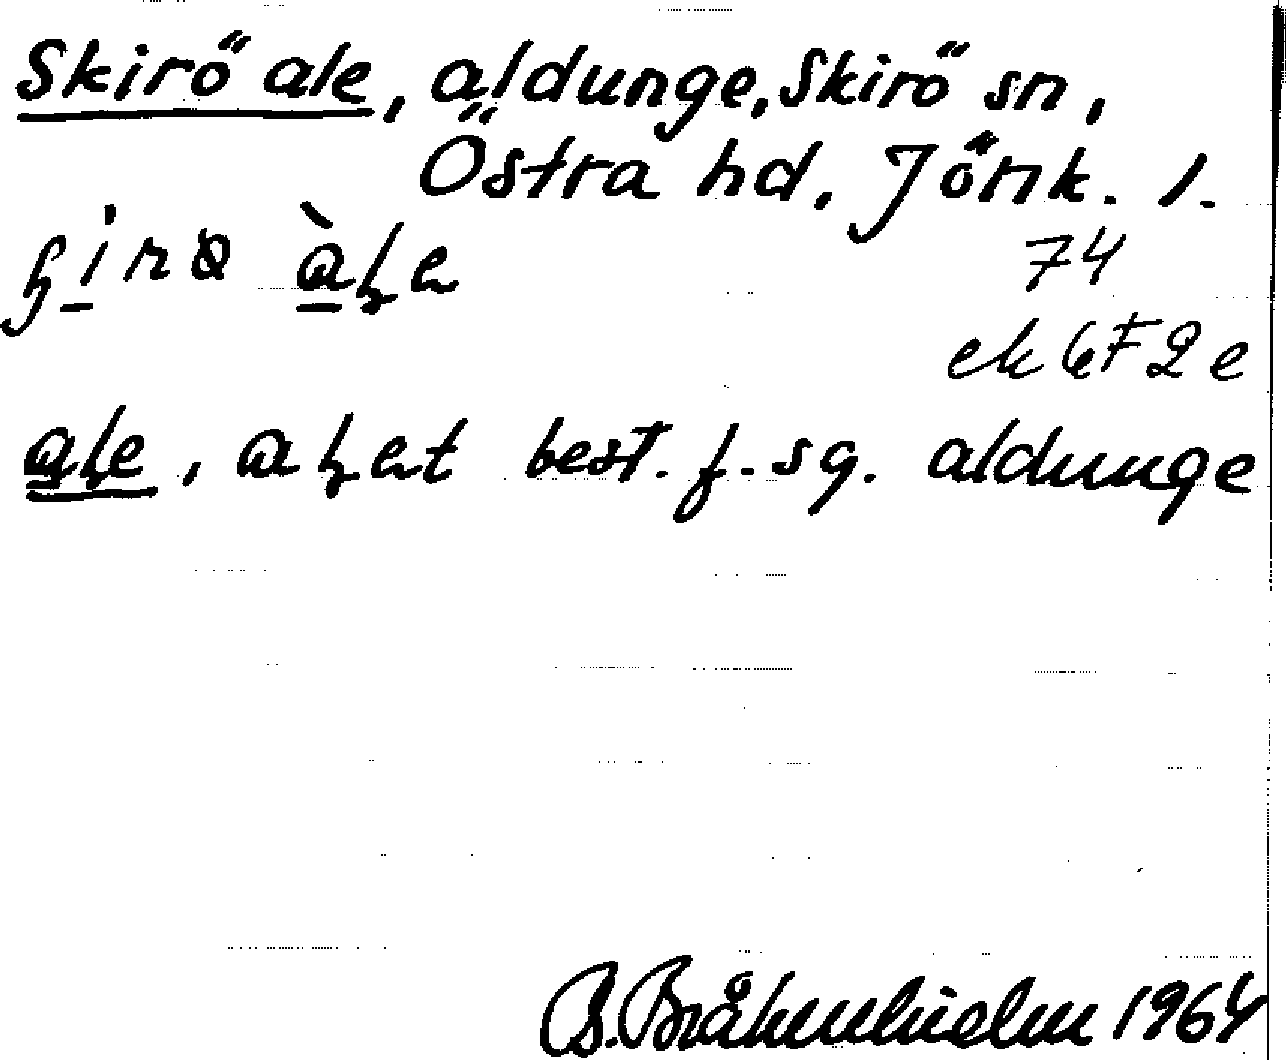 Skirö ale, aldunge, Skirö sn,
Östra hd. Jönk. l.
74
ek 6F2e
ale, best. f. sg. aldunge
B. 1964